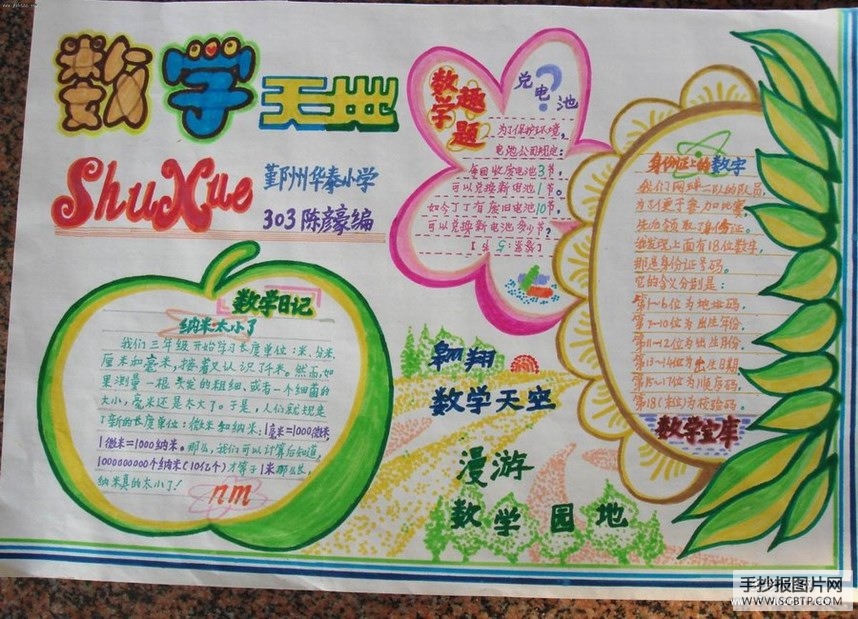 数学天地
ShuXue
鄞州华泰小学
303 陈彦豪编
数学趣题
兑电池
?
为了保护环境，
电池公司规定：
每回收废电池3节，
可以兑换新电池1节。
如今丁丁有废旧电池10节，
可以兑换新电池多少节？
【答案：5节】
身份证上的数字
我们网球二队的队员，
为了便于参加比赛，
先为领取了身份证。
我发现上面有18位数字，
那是身份证号码。
它的含义分别是：
第1~6位为地址码。
第7~10位为出生年份。
第11~12位为出生月份。
第13~14位为出生日期
第15~17位为顺序码。
第18(末位)为校验码。
数学宝库
数学日记
纳米太小了
我们三年级开始学习长度单位：米、分米、
厘米和毫米，接着又认识了千米。然而，如
果测量一根头发的粗细、或者一个细菌的
大小，毫米还是太大了。于是，人们就规定
了新的长度单位：微米和纳米：1毫米=1000微米，
1微米=1000纳米。那么，我们可以计算后知道，
1000000000个纳米(10亿个)才等于1米那么长，
纳米真的太小了！
nm
翱翔
数学天空
漫游
数学园地
手抄报图片网
WWW.SCBTP.COM